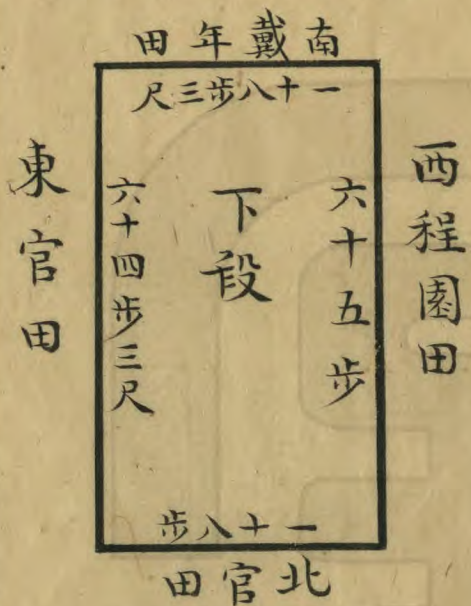 南戴年田
一十八步三尺
西程園田
六十五步
下段
六十四步三尺
東官田
一十八步
北官田